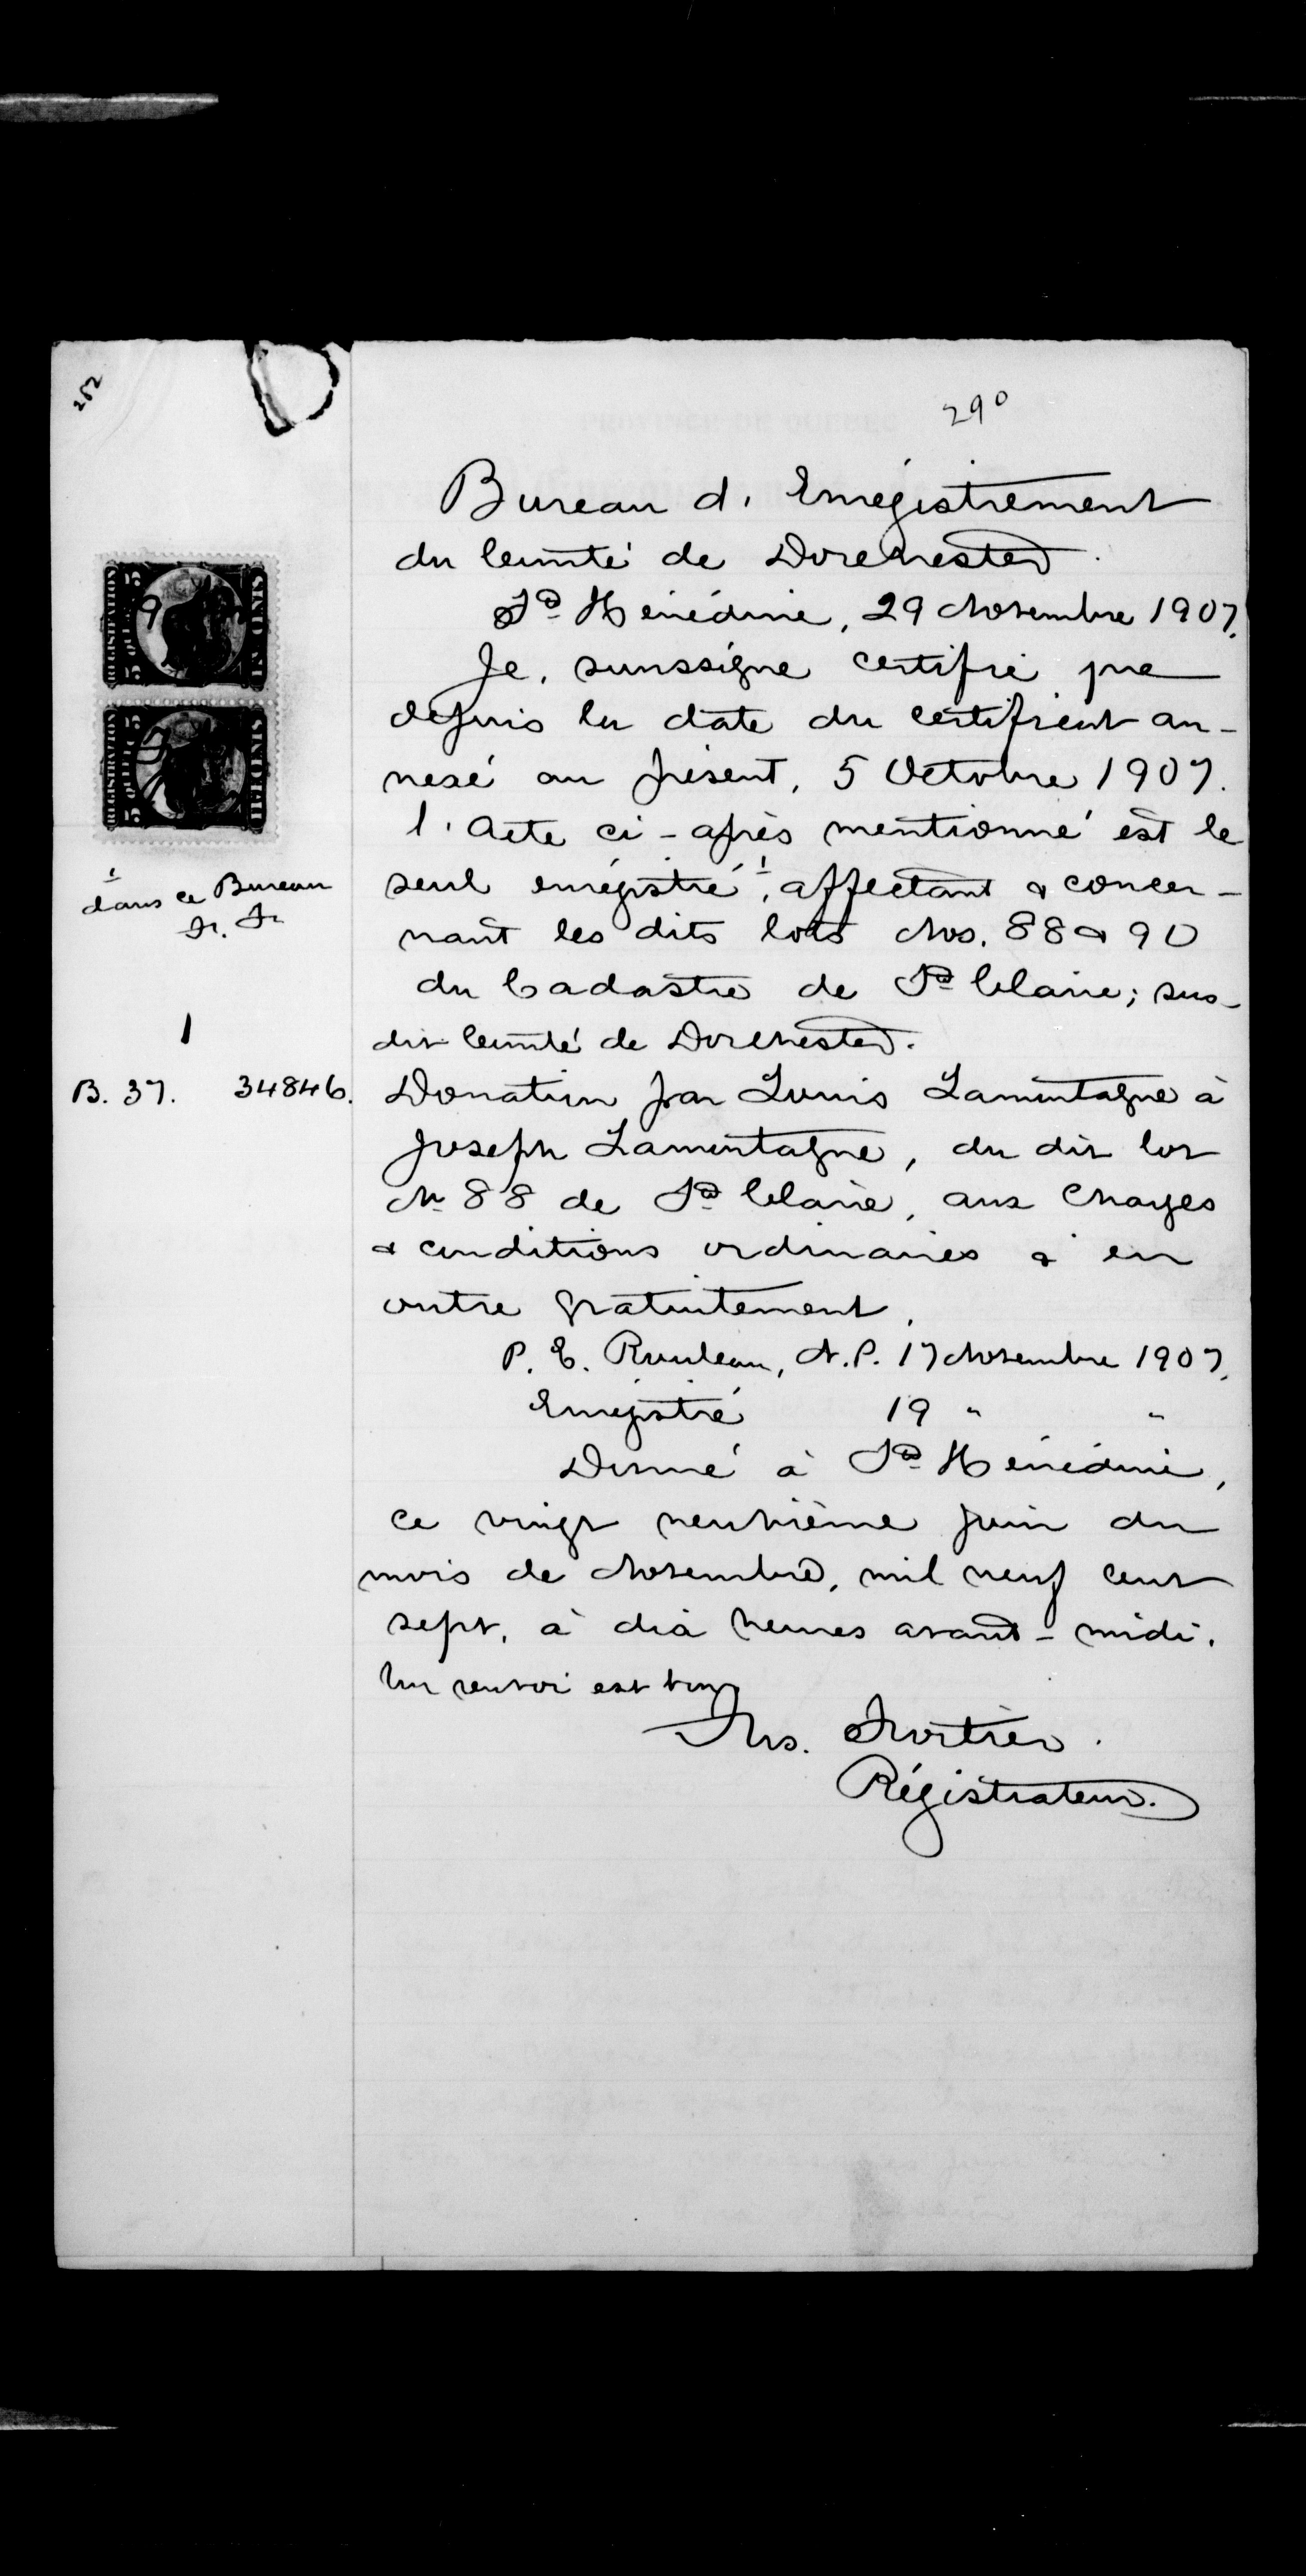 252
29º
Bureau d'Enregistrement
du Comté de Dorchester.
Ste Hénédine, 29 Novembre 1907.
Je, soussigné certifie que
depuis la date du certificat an-
nexé au présent, 5 Octobre 1907.
l'Acte ci-après mentionné est le
seul enregistré ¹, affectant & concer-
nant les dits lots Nos. 88 & 90
du Cadastre de Ste Claire; sus-
dit Comté de Dorchester.
REGISTRATION
5 5
QUEBEC
FIVE CENTS
REGISTRATION
5 5
QUEBEC
FIVE CENTS
¹
dans ce Bureau
1
B. 37. 34846.
Donation par Louis Lamontagne à
Joseph Lamontagne, du dit lot
No 88 de Ste Claire, aux charges
& conditions ordinaires & en
outre gratuitement.
P. E. Rouleau, N.P. 17 Novembre 1907.
Enregistré 19 " "
Donné à Ste Hénédine,
ce vingt neuvième jour du
mois de Novembre, mil neuf cent
sept, à dix heures avant-midi.
Un renvoi est bon
Fortier.
Régistrateur.